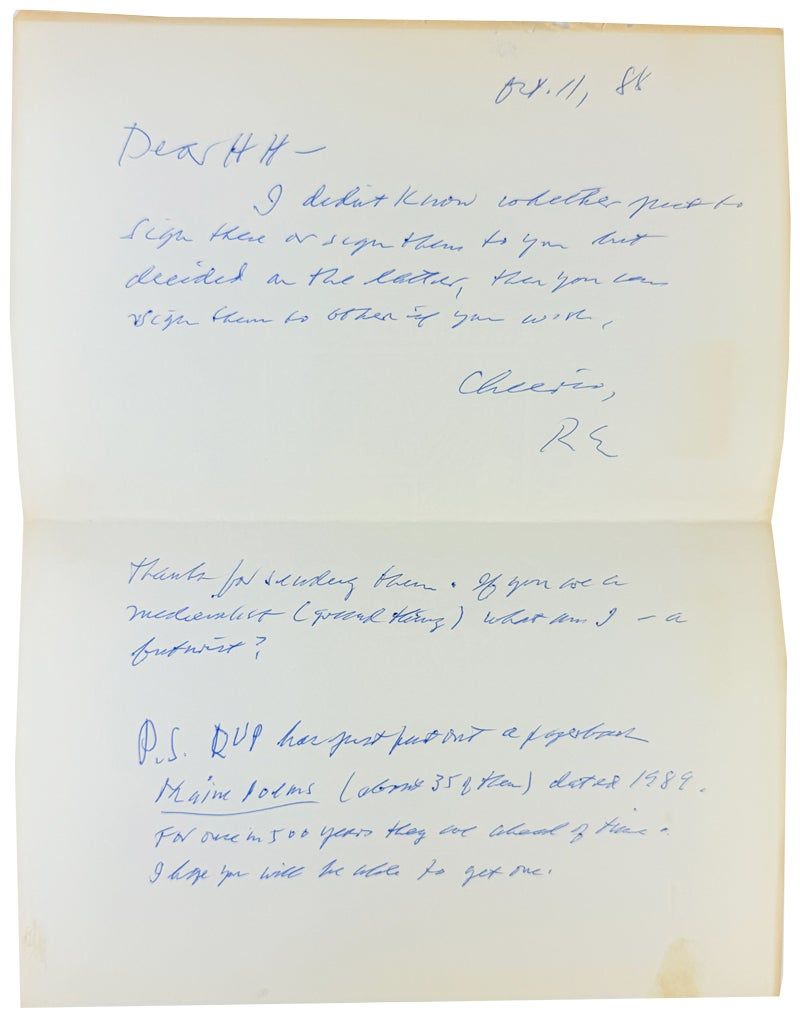 Oct. 11, 88
Dear HH —
I didn't know whether just to
sign these or sign them to you but
decided on the latter, then you can
sign them to other if you wish.
Cheerio,
RE
Thanks for sending them. If you are a
medievalist (good thing) what am I — a
futurist?
P.S. OUP has just put out a paperback
Maine Poems (about 35 of them) dated 1989.
For once in 500 years they are ahead of time.
I hope you will be able to get one.